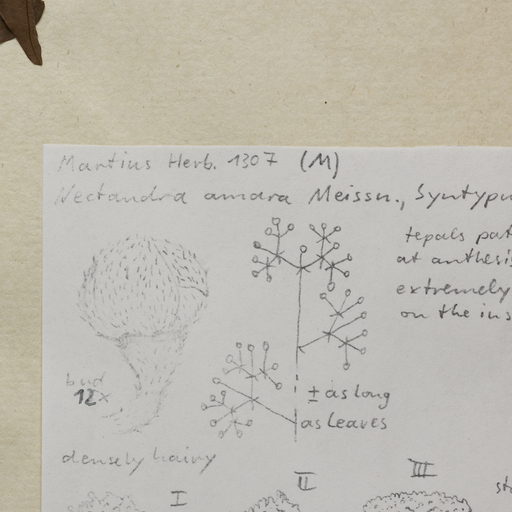 Martius Herb. 1307 (M)
Nectandra amara Meissn.,
tepals
at anthesis
extremely
on the
bud
12x
± as long
as leaves
densely hairy
I
II
III